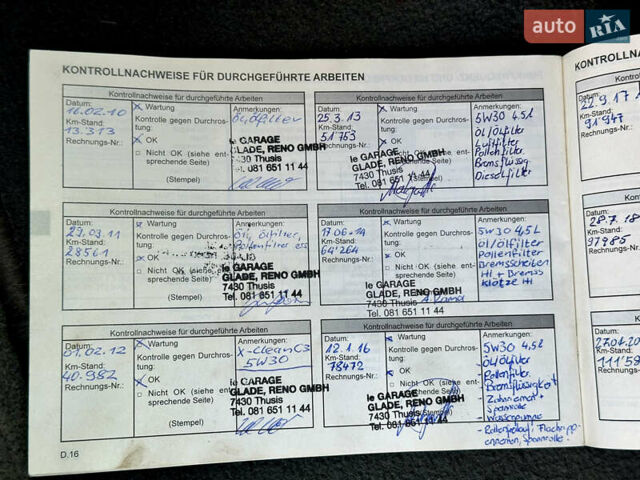 auto RIA
KONTROLLNACHWEISE FÜR DURCHGEFÜHRTE ARBEITEN
KONTROLLNACHWEISE
Kontrollnachweise für durchgeführte Arbeiten
Datum: 16.02.10
Km-Stand: 13.313
Rechnungs-Nr.:
Wartung
Kontrolle gegen Durchrostung:
OK
Nicht OK (siehe entsprechende Seite)
(Stempel)
Anmerkungen:
Öl, Ölfilter
le GARAGE
GLADE, RENO GMBH
7430 Thusis
Tel. 081 651 11 44
Kontrollnachweise für durchgeführte Arbeiten
Datum: 25.3.13
Km-Stand: 51753
Rechnungs-Nr.:
Wartung
Kontrolle gegen Durchrostung:
OK
Nicht OK (siehe entsprechende Seite)
(Stempel)
Anmerkungen:
5W30 4.5l
Öl/Ölfilter
Luftfilter
Pollenfilter
Bremsflüssig
Dieselfilter
le GARAGE
GLADE, RENO GMBH
7430 Thusis
Tel. 081 651 11 44
Kontrollnachweise für durchgeführte Arbeiten
Datum: 29.03.11
Km-Stand: 28561
Rechnungs-Nr.:
Wartung
Kontrolle gegen Durchrostung:
OK
Nicht OK (siehe entsprechende Seite)
(Stempel)
Anmerkungen:
Öl, Ölfilter,
Pollenfilter
le GARAGE
GLADE, RENO GMBH
7430 Thusis
Tel. 081 651 11 44
Kontrollnachweise für durchgeführte Arbeiten
Datum: 17.06.14
Km-Stand: 64'264
Rechnungs-Nr.:
Wartung
Kontrolle gegen Durchrostung:
OK
Nicht OK (siehe entsprechende Seite)
(Stempel)
Anmerkungen:
5W30 4,5L
öl/ölfilter
Pollenfilter
Bremsscheiben
HI + Brems
klötze HI
le GARAGE
GLADE, RENO GMBH
7430 Thusis
Tel. 081 651 11 44
Kontrollnachweise für durchgeführte Arbeiten
Datum: 01.02.12
Km-Stand: 40.982
Rechnungs-Nr.:
Wartung
Kontrolle gegen Durchrostung:
OK
Nicht OK (siehe entsprechende Seite)
(Stempel)
Anmerkungen:
X-Clean C3
5W30
le GARAGE
GLADE, RENO GMBH
7430 Thusis
Tel. 081 651 11 44
Kontrollnachweise für durchgeführte Arbeiten
Datum: 12.1.16
Km-Stand: 78472
Rechnungs-Nr.:
Wartung
Kontrolle gegen Durchrostung:
OK
Nicht OK (siehe entsprechende Seite)
(Stempel)
Anmerkungen:
5W30 4.5l
Öl/Ölfilter
- Pollenfilter
- Bremsflüssigkeit
- Zahnriemen +
Spannrolle
- Wasserpumpe
le GARAGE
GLADE, RENO GMBH
7430 Thusis
Tel. 081 651 11 44
D.16
Kon
Datum: 22.9.17
Km-Stand: 91'947
Rechnungs-
Datum: 28.7.18
Km-Stand: 97985
Rechnungs-
Km-Stand:
Rechnungs-